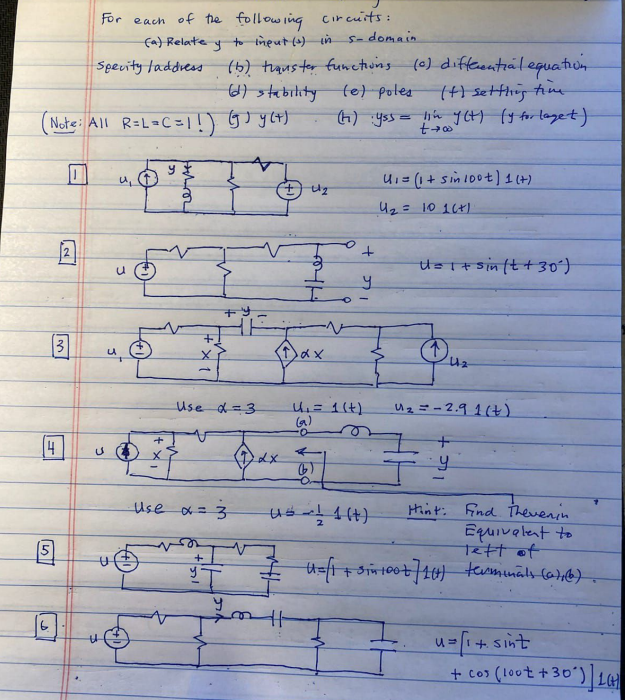 For each of the following circuits:
(a) Relate y to input(s) in s-domain
Specify/address (b) transfer functions (c) differential equation
(d) stability (e) poles (f) settling time
(Note: All R=L=C=1!) (g) y(t) (h) yss = lim y(t) (y for large t)
t→∞
1 u₁ y u₂ u₁ = (1 + sin100t) 1(t)
u₂ = 10 1(t)
2 u + y - u = 1 + sin(t + 30°)
3 u₁ + x - + y - αx u₂
Use α = 3 u₁ = 1(t) u₂ = -2.9 1(t)
4 u + x - αx (a) (b) + y -
Use α = 3 u = -1/2 1(t) Hint: Find Thevenin
Equivalent to
left of
terminals (a),(b).
5 u + y - u = [1 + sin100t] 1(t)
6 u y u = [1 + sint
+ cos(100t + 30°)] 1(t)